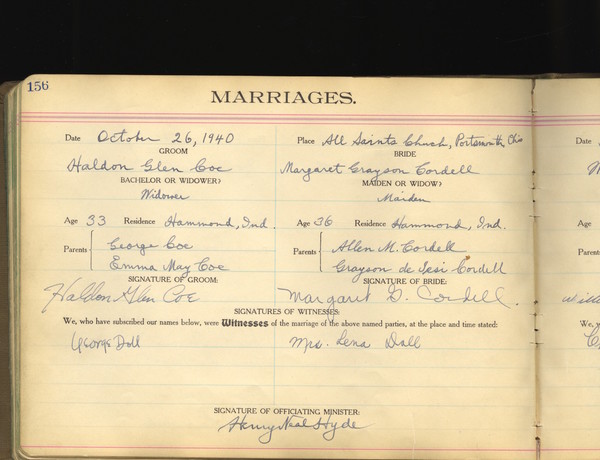 156
MARRIAGES.
Date October 26, 1940 Place All Saints Church, Portsmouth, Ohio
GROOM BRIDE
Haldon Glen Coe Margaret Grayson Cordell
BACHELOR OR WIDOWER? MAIDEN OR WIDOW?
Widower Maiden
Age 33 Residence Hammond, Ind. Age 36 Residence Hammond, Ind.
Parents George Coe Parents Allen M. Cordell
Emma May Coe Grayson de Cordell
SIGNATURE OF GROOM: SIGNATURE OF BRIDE:
Haldon Glen Coe Margaret G. Cordell.
SIGNATURES OF WITNESSES:
We, who have subscribed our names below, were Witnesses of the marriage of the above named parties, at the place and time stated:
George Doll Mrs. Lena Doll
SIGNATURE OF OFFICIATING MINISTER:
Henry Neal Hyde
Date
Age
Parents
We,